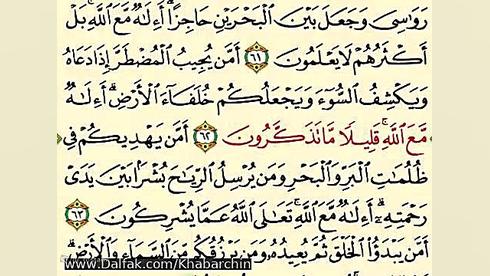 رَوَٰسِىَ وَجَعَلَ بَيْنَ ٱلْبَحْرَيْنِ حَاجِزًا ۗ أَءِلَٰهٌ مَّعَ ٱللَّهِ ۚ بَلْ
أَكْثَرُهُمْ لَا يَعْلَمُونَ ٦١ أَمَّن يُجِيبُ ٱلْمُضْطَرَّ إِذَا دَعَاهُ
وَيَكْشِفُ ٱلسُّوٓءَ وَيَجْعَلُكُمْ خُلَفَآءَ ٱلْأَرْضِ ۗ أَءِلَٰهٌ
مَّعَ ٱللَّهِ ۚ قَلِيلًا مَّا تَذَكَّرُونَ ٦٢ أَمَّن يَهْدِيكُمْ فِى
ظُلُمَٰتِ ٱلْبَرِّ وَٱلْبَحْرِ وَمَن يُرْسِلُ ٱلرِّيَٰحَ بُشْرًۢا بَيْنَ يَدَىْ
رَحْمَتِهِۦٓ ۗ أَءِلَٰهٌ مَّعَ ٱللَّهِ ۚ تَعَٰلَى ٱللَّهُ عَمَّا يُشْرِكُونَ ٦٣
أَمَّن يَبْدَؤُا۟ ٱلْخَلْقَ ثُمَّ يُعِيدُهُۥ وَمَن يَرْزُقُكُم مِّنَ ٱلسَّمَآءِ وَٱلْأَرْضِ ۗ
www.Dalfak.com/Khabarchin